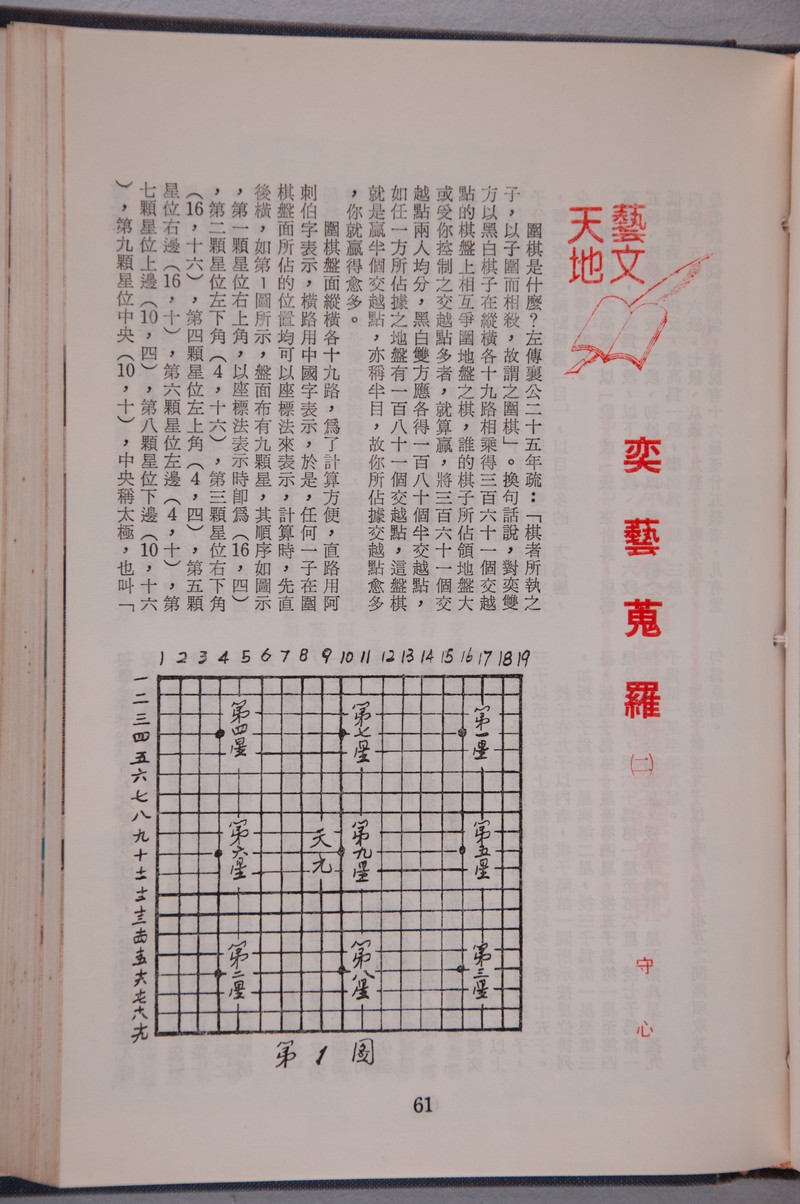 藝文
天地
奕藝蒐羅㈡
守心
圍棋是什麼？左傳襄公二十五年疏：「棋者所執之
子，以子圍而相殺，故謂之圍棋」。換句話說，對奕雙
方以黑白棋子在縱橫各十九路相乘得三百六十一個交越
點的棋盤上相互爭圍地盤之棋，誰的棋子所佔領地盤大
或受你控制之交越點多者，就算贏，將三百六十一個交
越點兩人均分，黑白雙方應各得一百八十個半交越點，
如任一方所佔據之地盤有一百八十一個交越點，這盤棋
就是贏半個交越點，亦稱半目，故你所佔據交越點愈多
，你就贏得愈多。
圍棋盤面縱橫各十九路，爲了計算方便，直路用阿
刺伯字表示，橫路用中國字表示，於是，任何一子在圍
棋盤面所佔的位置均可以座標法來表示，計算時，先直
後橫，如第1圖所示，盤面布有九顆星，其順序如圖示
，第一顆星位右上角，以座標法表示時卽爲（16，四）
，第二顆星位左下角（4，十六），第三顆星位右下角
（16，十六），第四顆星位左上角（4，四），第五顆
星位右邊（16，十），第六顆星位左邊（4，十），第
七顆星位上邊（10，四），第八顆星位下邊（10，十六
），第九顆星位中央（10，十），中央稱太極，也叫「
1 2 3 4 5 6 7 8 9 10 11 12 13 14 15 16 17 18 19
一
二
三
四
五
六
七
八
九
十
十一
十二
十三
十四
十五
十六
十七
十八
十九
第四星
第七星
第一星
第六星
天元
第九星
第五星
第二星
第八星
第三星
第1圖
61